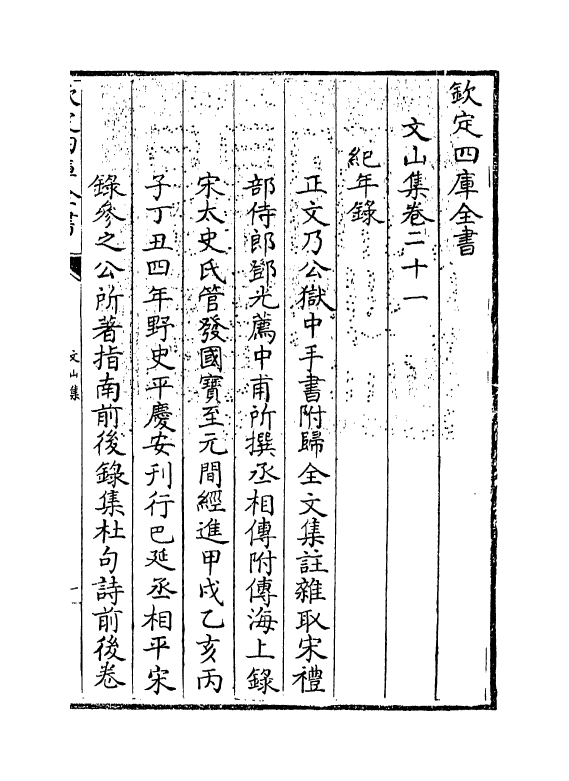 欽定四庫全書
文山集卷二十一
紀年錄
正文乃公獄中手書附歸全文集註雜取宋禮
部侍郎鄧光薦中甫所撰丞相傳附傳海上錄
宋太史氏管發國寶至元間經進甲戌乙亥丙
子丁丑四年野史平慶安刊行巴延丞相平宋
錄參之公所著指南前後錄集杜句詩前後卷
欽定四庫全書
文山集
一